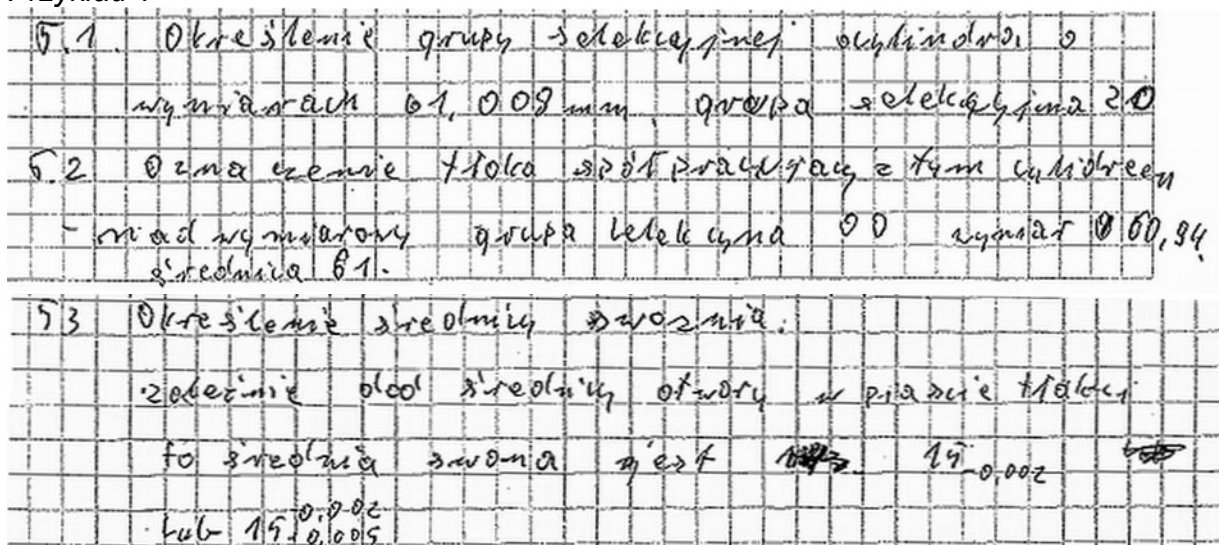 5.1. Określenie grupy selekcyjnej cylindra o
wymiarach 61,008 mm grupa selekcyjna 20
5.2 Oznaczenie tłoka spół pracujący z tym cylidreem
- nad wymiarowy grupa selekcyjna 00 wymiar 60,94.
średnica 61.
53 Określenie średnicy sworznia.
zależnie od średnicy otwory w piaście tłoka
to średnia swona jest 15 -0,002
lub 15 -0,002 -0,005